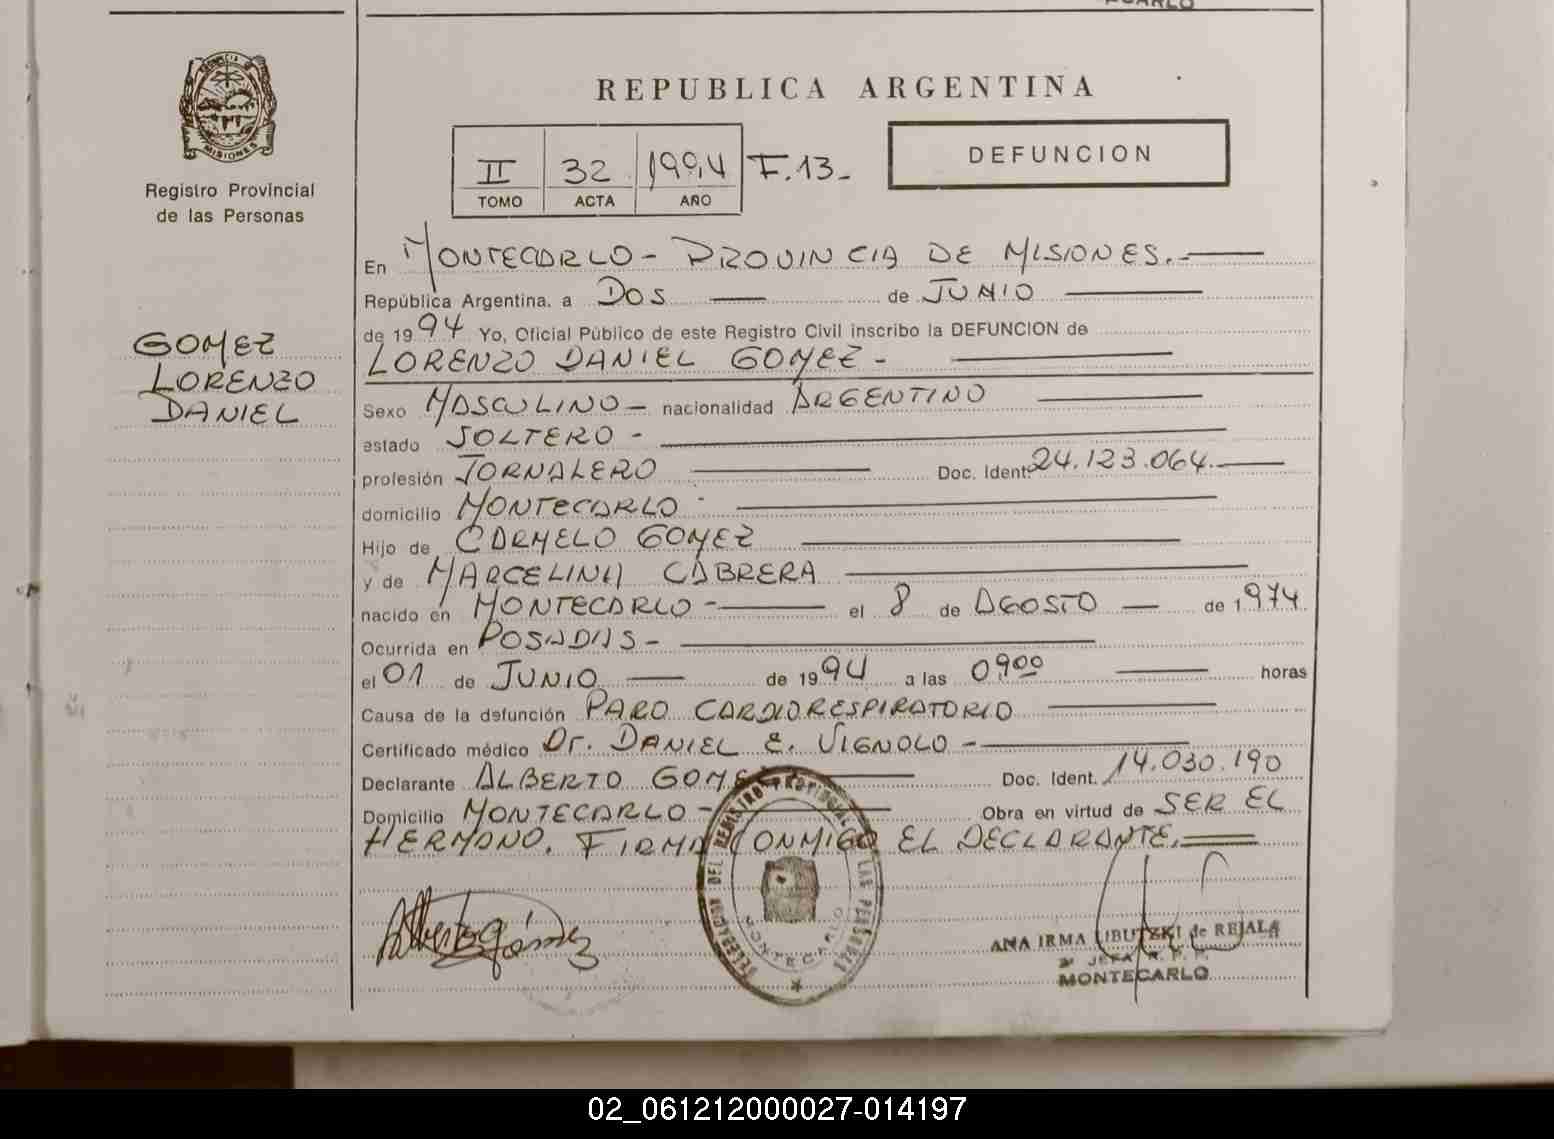 REPUBLICA ARGENTINA
PROVINCIA DE
MISIONES
Registro Provincial
de las Personas
II 32 1994 F.13-
TOMO ACTA AÑO
DEFUNCION
GOMEZ
LORENZO
DANIEL
En MONTECARLO - PROVINCIA DE MISIONES.-
República Argentina, a DOS de JUNIO
de 1994 Yo, Oficial Público de este Registro Civil inscribo la DEFUNCION de
LORENZO DANIEL GOMEZ -
Sexo MASCULINO - nacionalidad ARGENTINO
estado SOLTERO -
profesión JORNALERO Doc. Ident. 24.123.064.
domicilio MONTECARLO -
Hijo de CARMELO GOMEZ
y de MARCELINA CABRERA
nacido en MONTECARLO - el 8 de AGOSTO de 1974
Ocurrida en POSADAS -
el 01 de JUNIO de 1994 a las 0900 horas
Causa de la defunción PARO CARDIORESPIRATORIO
Certificado médico Dr. DANIEL E. VIGNOLO -
Declarante ALBERTO GOMEZ Doc. Ident. 14.030.190
Domicilio MONTECARLO - Obra en virtud de SER EL
HERMANO. FIRMA CONMIGO EL DECLARANTE.
Alberto Gómez
DELEGACION DEL REGISTRO PROVINCIAL DE LAS PERSONAS
MONTECARLO
ANA IRMA LIBUTZKI de REJALA
JEFA R. P. P.
MONTECARLO
02_061212000027-014197